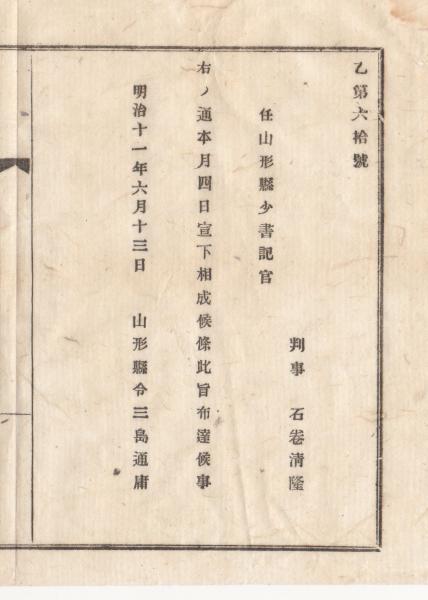 乙第六拾號
判事　石卷清隆
任山形縣少書記官
右ノ通本月四日宣下相成候條此旨布達候事
明治十一年六月十三日　山形縣令三島通庸